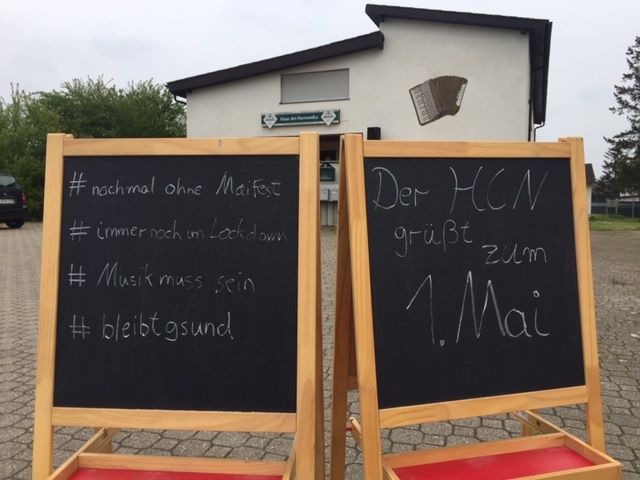 Haus der Harmonika
# nochmal ohne MaiFest
# immernoch im Lockdown
# Musik muss sein
# bleibtgsund
Der HCN
grüßt
zum
1. Mai